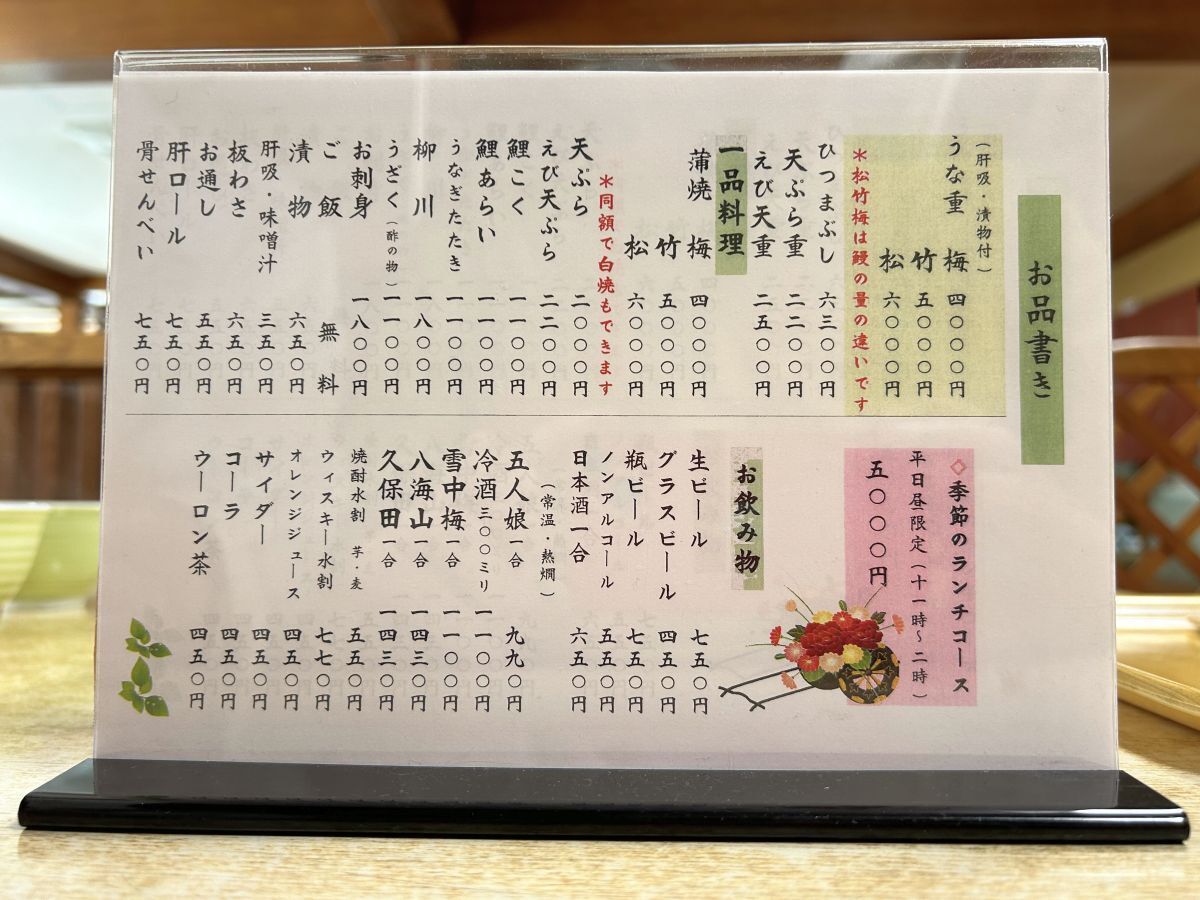 お品書き
（肝吸・漬物付）
うな重 梅 四〇〇〇円
竹 五〇〇〇円
松 六〇〇〇円
＊松竹梅は鰻の量の違いです
ひつまぶし 六三〇〇円
天ぷら重 二二〇〇円
えび天重 二五〇〇円
一品料理
蒲焼 梅 四〇〇〇円
竹 五〇〇〇円
松 六〇〇〇円
＊同額で白焼もできます
天ぷら 二〇〇〇円
えび天ぷら 二二〇〇円
鯉こく 一一〇〇円
鯉あらい 一一〇〇円
うなぎたたき 一一〇〇円
柳川 一八〇〇円
うざく（酢の物） 一一〇〇円
お刺身 一八〇〇円
ご飯 無料
漬物 六五〇円
肝吸・味噌汁 三五〇円
板わさ 六五〇円
お通し 五五〇円
肝ロール 七五〇円
骨せんべい 七五〇円
◇季節のランチコース
平日昼限定（十一時～二時）
五〇〇〇円
お飲み物
生ビール 七五〇円
グラスビール 四五〇円
瓶ビール 七五〇円
ノンアルコール 五五〇円
日本酒一合 六五〇円
（常温・熱燗）
五人娘一合 九九〇円
冷酒三〇〇ミリ 一一〇〇円
雪中梅一合 一一〇〇円
八海山一合 一四三〇円
久保田一合 一四三〇円
焼酎水割 芋・麦 五五〇円
ウィスキー水割 七七〇円
オレンジジュース 四五〇円
サイダー 四五〇円
コーラ 四五〇円
ウーロン茶 四五〇円